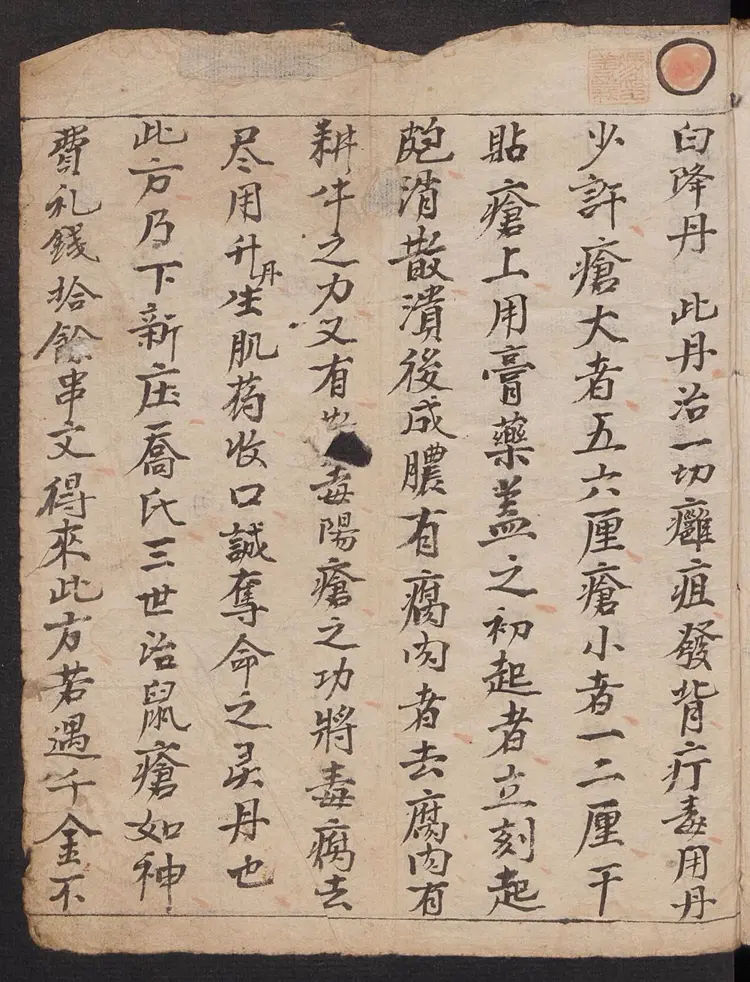 白降丹 此丹治一切癰疽發背疔毒用丹
少許瘡大者五六厘瘡小者一二厘干
貼瘡上用膏藥盖之初起者立刻起
皰消散潰後成膿有腐肉者去腐肉有
耕牛之力又有毒陽瘡之功將毒腐去
尽用升丹生肌药收口誠奪命之灵丹也
此方乃下新庄喬氏三世治鼠瘡如神
費礼錢拾餘串文得來此方若遇千金不